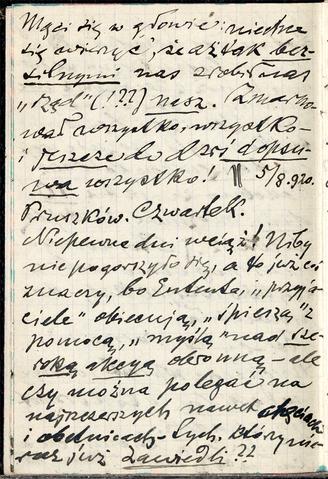 Mąci się w głowie: niechce
się wierzyć, że aż tak bez-
silnymi nas zrobił nasz
„rząd" (!??) nasz. Zmarno-
wał wszystko, wszystko-
i jeszcze do dziś dopsu-
wa wszystko! || 5/8.920.
Pruszków. Czwartek.
Niepewne dni wciąż! Niby
nie pogorszyło się, a to już coś
znaczy, bo Ententa, „przyja-
ciele" obiecują, „śpieszą" z
pomocą, „myślą" nad sze-
roką akcyą obronną – ale
czy można polegać na
najszczerszych nawet
i obietnicach- tych, którzy nie
raz już zawiedli??